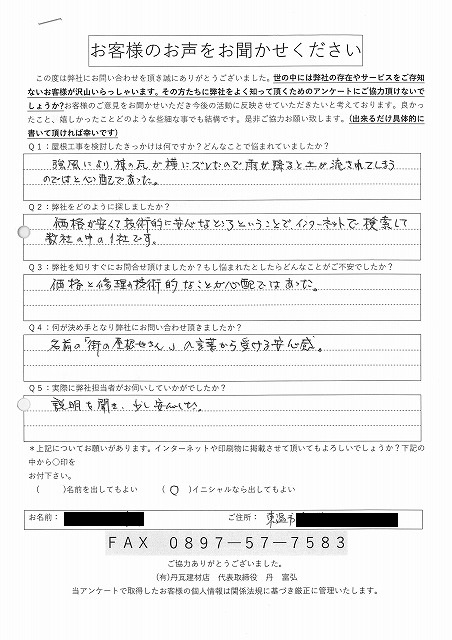 お客様のお声をお聞かせください
この度は弊社にお問い合わせを頂き誠にありがとうございました。世の中には弊社の存在やサービスをご存知
ないお客様が沢山いらっしゃいます。その方たちに弊社をよく知って頂くためのアンケートにご協力頂けないで
しょうか?お客様のご意見をお聞かせいただき今後の活動に反映させていただきたいと考えております。良かっ
たこと、嬉しかったことどのような些細な事でも結構です。是非ご協力お願い致します。(出来るだけ具体的に
書いて頂ければ幸いです)
Q1:屋根工事を検討したきっかけは何ですか?どんなことで悩まれていましたか?
強風により、棟の瓦が横にズレたので雨が降ると土が流されてしまう
のではと心配であった。
Q2:弊社をどのように探しましたか?
価格が安くて技術的に安心なところということで、インターネットで検索して
数社の中の1社です。
Q3:弊社を知りすぐにお問合せ頂けましたか?もし悩まれたとしたらどんなことがご不安でしたか?
価格と修理の技術的なことが心配ではあった。
Q4:何が決め手となり弊社にお問い合わせ頂きましたか?
名前の「街の屋根やさん」の言葉から受ける安心感。
Q5:実際に弊社担当者がお伺いしていかがでしたか?
説明を聞き、少し安心した。
*上記についてお願いがあります。インターネットや印刷物に掲載させて頂いてもよろしいでしょうか?下記の
中から○印を
お付下さい。
( )名前を出してもよい (○)イニシャルなら出してもよい
お名前: ご住所: 東温市
FAX 0897-57-7583
ご協力ありがとうございました。
(有)丹瓦建材店 代表取締役 丹 富弘
当アンケートで取得したお客様の個人情報は関係法規に基づき厳正に管理いたします。